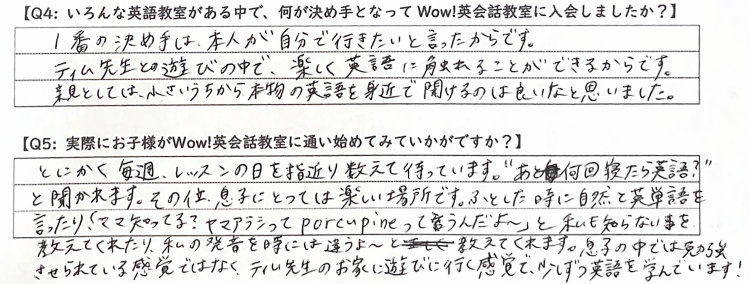 【Q4: いろんな英語教室がある中で、何が決め手となって Wow!英会話教室に入会しましたか？】
1番の決め手は、本人が自分で行きたいと言ったからです。
ティム先生との遊びの中で、楽しく英語に触れることができるからです。
親としては、小さいうちから本物の英語を身近で聞けるのは良いなと思いました。
【Q5: 実際にお子様がWow!英会話教室に通い始めてみていかがですか？】
とにかく毎週、レッスンの日を指折り数えて待っています。"あと何回寝たら英語？"
と聞かれます。その位、息子にとっては楽しい場所です。ふとした時に自然と英単語を
言ったり、「ママ知ってる？ヤマアラシってporcupineって言うんだよ〜」と私も知らない事を
教えてくれたり、私の発音を時には違うよ〜と教えてくれます。息子の中では勉強
させられている感覚ではなく、ティム先生のお家に遊びに行く感覚で、少しずつ英語を学んでいます！